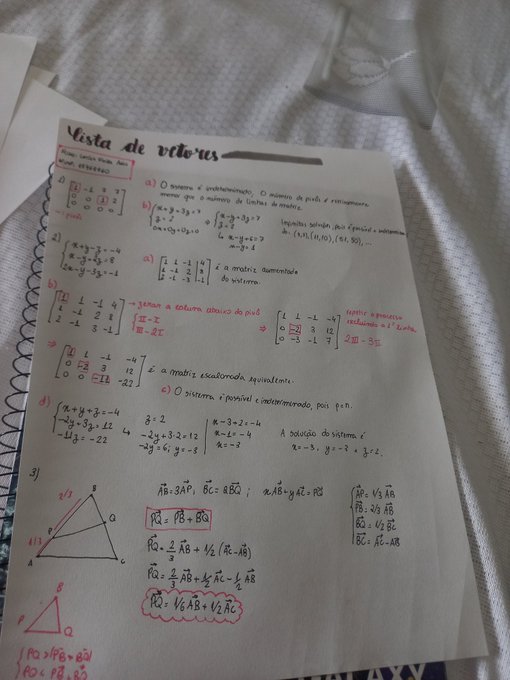 Lista de vetores
1) [1 -1 3 7
0 0 1 2
0 0 0 0]
→ pivôs
a) O sistema é indeterminado. O número de pivôs é
menor que o número de linhas da matriz.
b) {x+y+3z=7
z=2
0x+0y+0z=0
⇒ {x-y+3z=7
z=2
↳ x-y+6=7
x-y=1
Infinitas soluções, pois é possível e indeterminado
2) {x+y-z=-4
x-y+2z=8
2x-y-3z=-1
a) [1 1 -1 4
1 -1 2 8
2 -1 -3 -1] é a matriz aumentada
do sistema.
b) [1 1 -1 4
1 -1 2 8
2 -1 3 -1]
→ zerar a coluna abaixo do pivô
{II-I
III-2I
⇒ [1 1 -1 -4
0 -2 3 12
0 -3 -1 7]
repetir o processo
excluindo a 1ª linha
2III-3II
⇒ [1 1 -1 -4
0 -2 3 12
0 0 -11 -22] é a matriz escalonada equivalente.
c) O sistema é possível e indeterminado, pois p=n.
d) {x+y+z=-4
-2y+3z=12
-11z=-22
↳ z=2
-2y+3·2=12
-2y=6; y=-3
x-3+2=-4
x-1=-4
x=-3
A solução do sistema é
x=-3, y=-3 e z=2.
3)
2/3
1/3
B
Q
P
A
C
AB=3AP, BC=2BQ; xAB+yAC=PQ
PQ=PB+BQ
PQ=2/3 AB+1/2(AC-AB)
PQ=2/3 AB+1/2 AC-1/2 AB
PQ=1/6 AB+1/2 AC
{AP=1/3 AB
PB=2/3 AB
BQ=1/2 BC
BC=AC-AB
B
P
Q
GALAXY